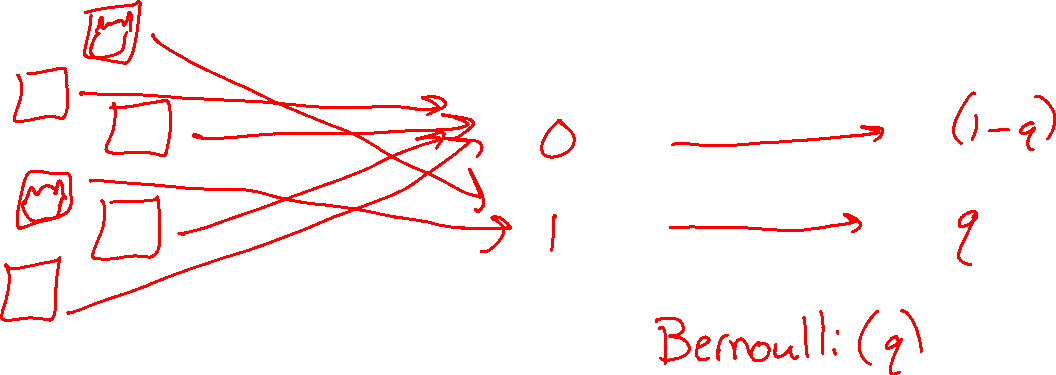 0 (1-q)
1 q
Bernoulli(q)